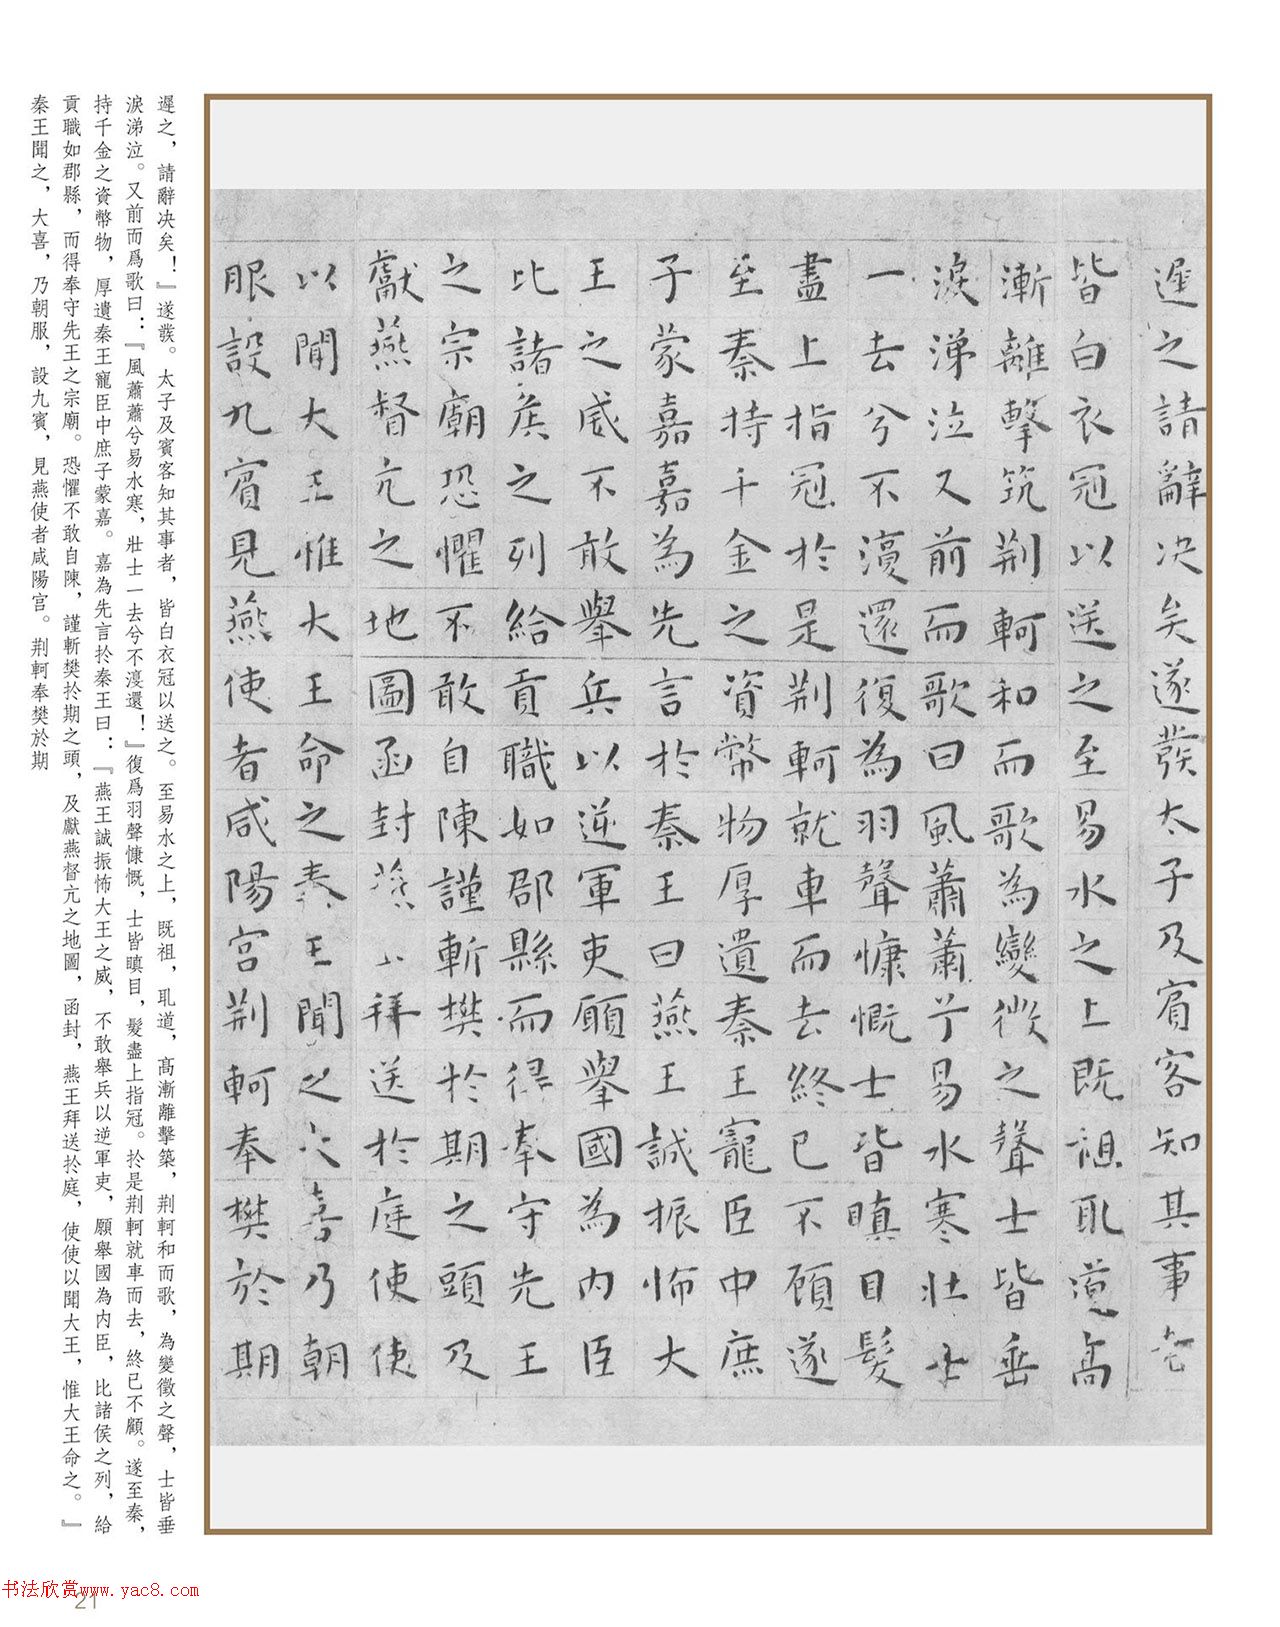 遲之請辭决矣遂發太子及賓客知其事者
皆白衣冠以送之至易水之上既祖取道高
漸離擊筑荆軻和而歌為變徵之聲士皆垂
淚涕泣又前而歌曰風蕭蕭兮易水寒壯士
一去兮不復還復為羽聲慷慨士皆瞋目髮
盡上指冠於是荆軻就車而去終已不顧遂
至秦持千金之資幣物厚遺秦王寵臣中庶
子蒙嘉嘉為先言於秦王曰燕王誠振怖大
王之威不敢舉兵以逆軍吏願舉國為内臣
比諸侯之列給貢職如郡縣而得奉守先王
之宗廟恐懼不敢自陳謹斬樊於期之頭及
獻燕督亢之地圖函封燕王拜送於庭使使
以聞大王惟大王命之秦王聞之大喜乃朝
服設九賓見燕使者咸陽宫荆軻奉樊於期
遲之，請辭决矣！』遂發。太子及賓客知其事者，皆白衣冠以送之。至易水之上，既祖，取道，高漸離擊築，荆軻和而歌，為變徵之聲，士皆垂
淚涕泣。又前而爲歌曰：『風蕭蕭兮易水寒，壯士一去兮不復還！』復爲羽聲慷慨，士皆瞋目，髮盡上指冠。於是荆軻就車而去，終已不顧。遂至秦，
持千金之資幣物，厚遺秦王寵臣中庶子蒙嘉。嘉為先言於秦王曰：『燕王誠振怖大王之威，不敢舉兵以逆軍吏，願舉國為内臣，比諸侯之列，給
貢職如郡縣，而得奉守先王之宗廟。恐懼不敢自陳，謹斬樊於期之頭，及獻燕督亢之地圖，函封，燕王拜送於庭，使使以聞大王，惟大王命之。』
秦王聞之，大喜，乃朝服，設九賓，見燕使者咸陽宫。荆軻奉樊於期
书法欣赏www.yac8.com
21